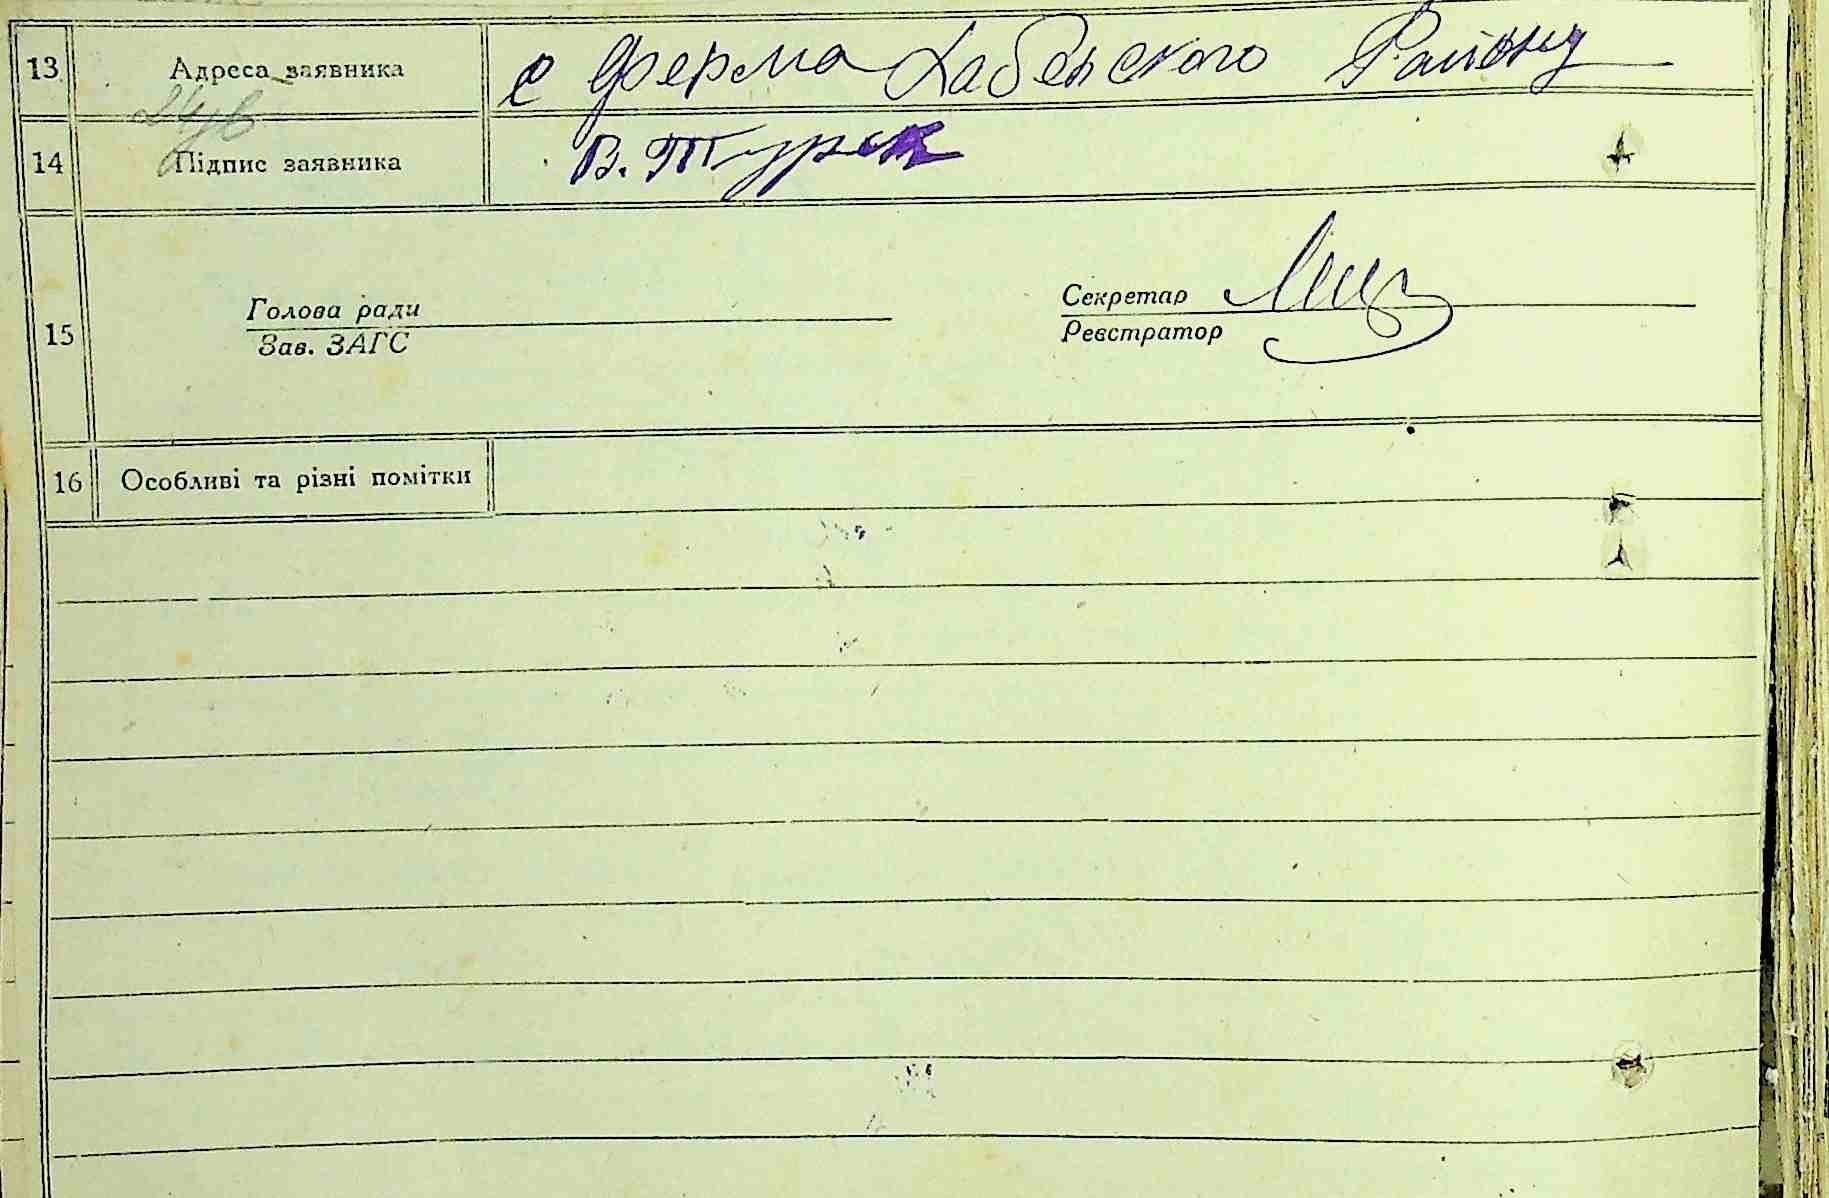 13 Адреса заявника с Ферма Хабенского Району
14 Підпис заявника В. Турск
15
Голова ради
Зав. ЗАГС
Секретар
Реєстратор
16 Особливі та різні помітки